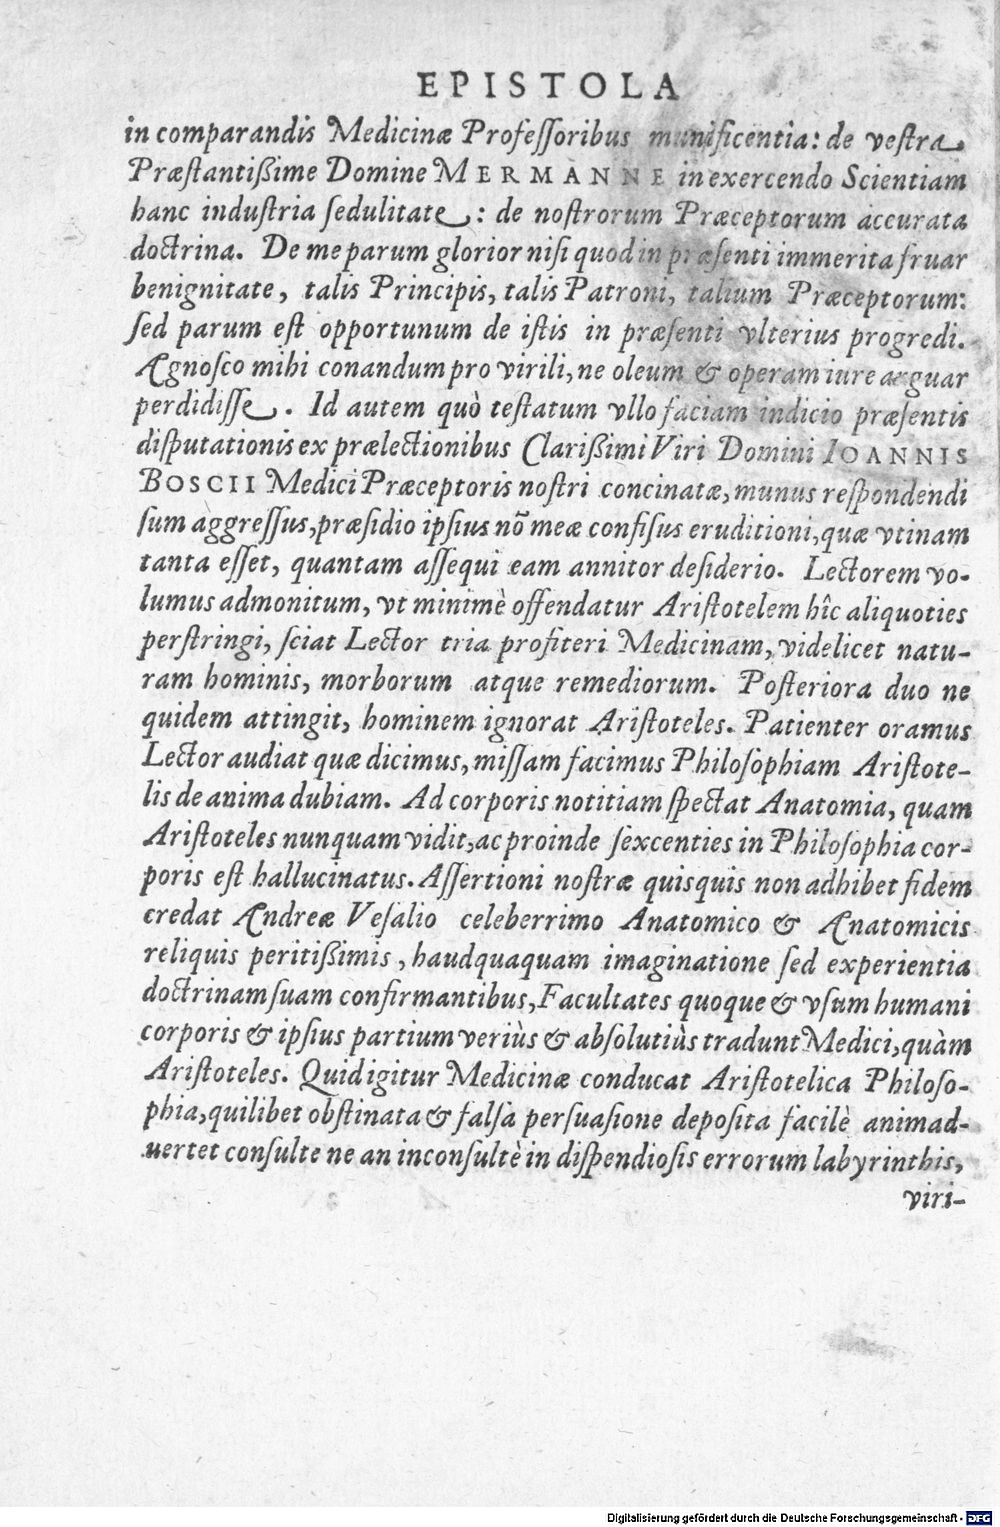 EPISTOLA
in comparandis Medicinæ Professoribus munificentia: de vestra
Præstantißime Domine MERMANNE in exercendo Scientiam
hanc industria sedulitate: de nostrorum Præceptorum accurata
doctrina. De me parum glorior nisi quod in præsenti immerita fruar
benignitate, talis Principis, talis Patroni, talium Præceptorum:
sed parum est opportunum de istis in præsenti vlterius progredi.
Agnosco mihi conandum pro virili, ne oleum & operam iure arguar
perdidisse. Id autem quò testatum vllo faciam indicio præsentis
disputationis ex prælectionibus Clarißimi Viri Domini IOANNIS
BOSCII Medici Præceptoris nostri concinatæ, munus respondendi
sum aggressus, præsidio ipsius nō meæ confisus eruditioni, quæ vtinam
tanta esset, quantam assequi eam annitor desiderio. Lectorem vo-
lumus admonitum, vt minimè offendatur Aristotelem hîc aliquoties
perstringi, sciat Lector tria profiteri Medicinam, videlicet natu-
ram hominis, morborum atque remediorum. Posteriora duo ne
quidem attingit, hominem ignorat Aristoteles. Patienter oramus
Lector audiat quæ dicimus, missam facimus Philosophiam Aristote-
lis de anima dubiam. Ad corporis notitiam spectat Anatomia, quam
Aristoteles nunquam vidit, ac proinde sexcenties in Philosophia cor-
poris est hallucinatus. Assertioni nostræ quisquis non adhibet fidem
credat Andreæ Vesalio celeberrimo Anatomico & Anatomicis
reliquis peritißimis, haudquaquam imaginatione sed experientia
doctrinam suam confirmantibus, Facultates quoque & vsum humani
corporis & ipsius partium veriùs & absolutiùs tradunt Medici, quàm
Aristoteles. Quid igitur Medicinæ conducat Aristotelica Philoso-
phia, quilibet obstinata & falsa persuasione deposita facilè animad-
uertet consulte ne an inconsultè in dispendiosis errorum labyrinthis,
viri-
Digitalisierung gefördert durch die Deutsche Forschungsgemeinschaft - DFG